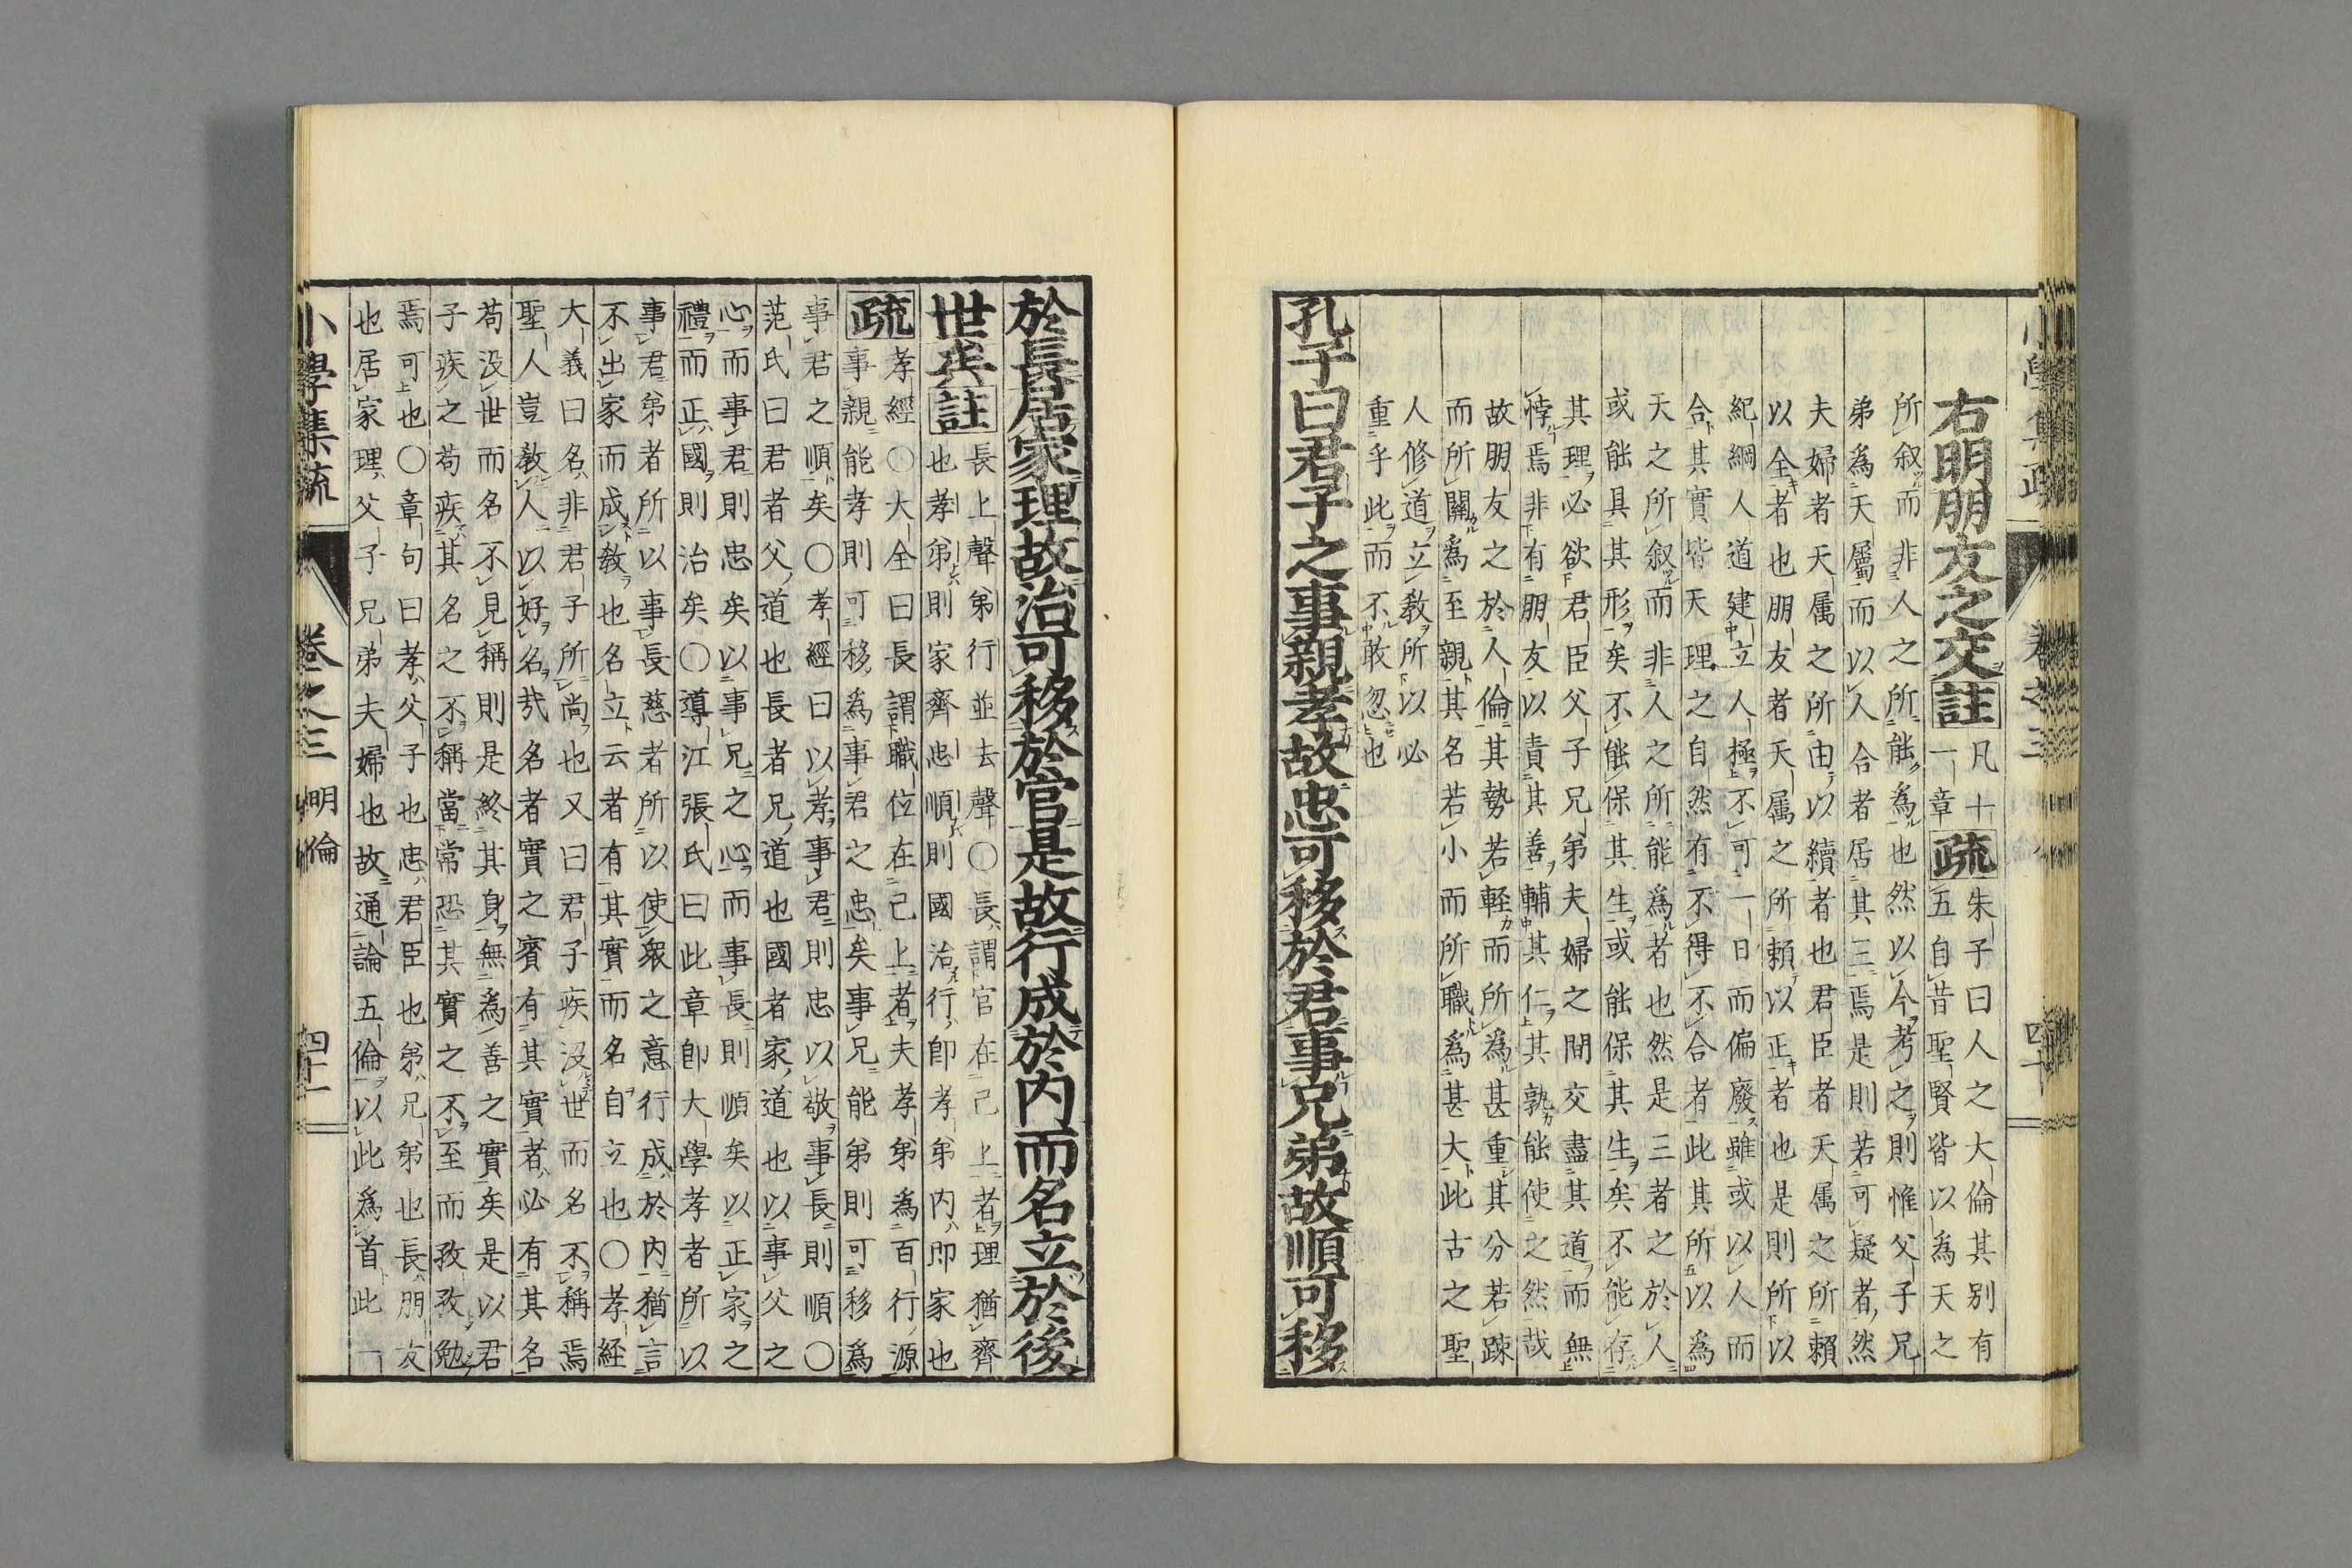 右明朋友之交註
凡十
一章
疏
朱子曰人之大倫其別有
五自昔聖賢皆以爲天之
所叙而非人之所能爲也然以今考之則惟父子兄
弟爲天屬而以人合者居其三焉是則若可疑者然
夫婦者天属之所由以續者也君臣者天属之所賴
以全者也朋友者天属之所賴以正者也是則所以
紀綱人道建立人極不可一日而偏廢雖或以人而
合其實皆天理之自然有不得不合者此其所以爲
天之所叙而非人之所能爲者也然是三者之於人
或能具其形矣不能保其生或能保其生矣不能存
其理必欲君臣父子兄弟夫婦之間交盡其道而無
悖焉非有朋友以責其善輔其仁其孰能使之然哉
故朋友之於人倫其勢若輕而所爲甚重其分若疎
而所關爲至親其名若小而所職爲甚大此古之聖
人修道立敎所以必
重乎此而不敢忽也
孔子曰君子之事親孝故忠可移於君事兄弟故順可移
於長居家理故治可移於官是故行成於内而名立於後
世矣註
長上聲弟行並去聲〇長謂官在己上者理猶齊
也孝弟則家齊忠順則國治行即孝弟内即家也
疏
孝經〇大全曰長謂職位在己上者夫孝弟爲百行源
事親能孝則可移爲事君之忠矣事兄能弟則可移爲
事君之順矣〇孝經曰以孝事君則忠以敬事長則順〇
范氏曰君者父道也長者兄道也國者家道也以事父之
心而事君則忠矣以事兄之心而事長則順矣以正家之
禮而正國則治矣〇導江張氏曰此章即大學孝者所以
事君弟者所以事長慈者所以使衆之意行成於内猶言
不出家而成敎也名立云者有其實而名自立也〇孝経
大義曰名非君子所尚也又曰君子疾沒世而名不稱焉
聖人豈敎人以好名哉名者實之賓有其實者必有其名
苟没世而名不見稱則是終其身無爲善之實矣是以君
子疾之苟疾其名之不稱當常恐其實之不至而孜孜勉
焉可也〇章句曰孝父子也忠君臣也弟兄弟也長朋友
也居家理父子兄弟夫婦也故通論五倫以此爲首此一
小學集疏 卷之三 明倫 四十一